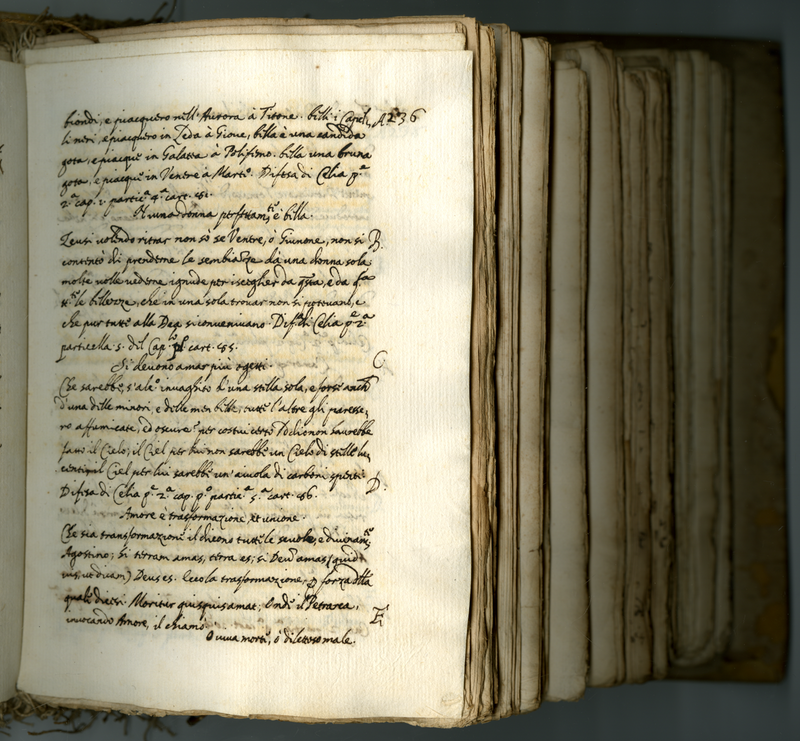 biondi, e piacquero nell'Aurora à Titone. belli i Capel, A 236
li neri, e piacquero in Leda à Gioue, bella è una candida
gota, e piacque in Galatea à Polifemo. bella una bruna
gota, e piacque in Venere à Marte. Difesa di Celia p.ª
2.ª cap. 1. partic.ª 4.ª cart. 151.
Niuna donna perfettam.te è bella.
Zeusi uolendo ritrar non sò se Venere, ò Giunone, non si B.
contentò di prenderne le sembianze da una donna sola:
molte uolle uederne ignude per isceglier da q.sta, e da q.lla
tt.e le bellezze, che in una sola trouar non si poteuano, e
che pur tutte alla Dea si conueniuano. Difesa di Celia p.ª 2.ª
particella 5. del Cap.º p.º cart. 155.
Si deuono amar più ogetti. C.
Che sarebbe, s'alc.º inuaghito d'una stella sola, e forse anch
d'una delle minori, e delle men belle, tutte l'altre gli paresse,
ro affumicate, ed oscure? per costui certo Dio non haurebbe
fatto il Cielo, il Ciel per lui non sarebbe un Cielo di stelle lu,
centi, il Ciel per lui sarebbe un'aiuola di carboni spenti.
Difesa di Celia p.ª 2.ª cap. p.º partic.ª 5.ª cart. 156. D.
Amore è trasformazione, et unione.
Che sia transformazione il dicono tutte le scuole, e diuinam.te
Agostino; Si terram amas, terra es; si Deum amas (quid
uis, ut dicam) Deus es. Ecco la trasformazione, p forza della
quale dicesi. Moritur quisquis amat; Onde il Petrarca, E
inuocando Amore, il chiamò.
O uiua morte, ò diletoso male.